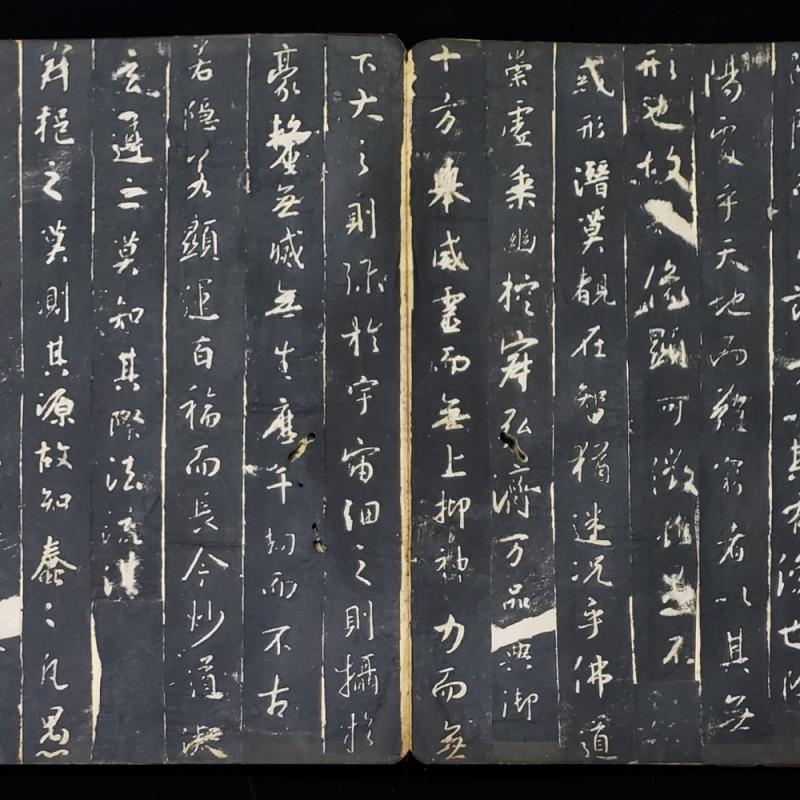 以其有像也陽
陽處乎天地而難窮者以其無
形也故像顯可徵雖愚不
惑形潛莫覩在智猶迷況乎佛道
崇虛乘幽控寂弘濟万品典御
十方舉威靈而無上抑神力而無
下大之則弥於宇宙細之則攝於
豪釐無滅無生歷千劫而不古
若隱若顯運百福而長今妙道凝
玄遵之莫知其際法流湛
寂挹之莫測其源故知蠢〻凡愚